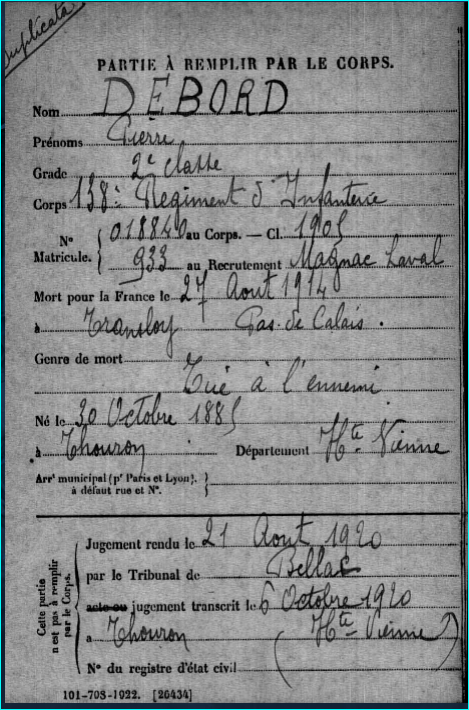 Duplicata
PARTIE À REMPLIR PAR LE CORPS.
Nom DEBORD
Prénoms Pierre
Grade 2e classe
Corps 138e Regiment d'Infanterie
Nº 018840 au Corps. — Cl. 1905
Matricule. 933 au Recrutement Magnac Laval
Mort pour la France le 27 Aout 1914
à Transloy Pas-de-Calais.
Genre de mort
Tué à l'ennemi
Né le 30 Octobre 1885
à Thouron Département Hte Vienne
Arrt municipal (pr Paris et Lyon),
à défaut rue et Nº.
Cette partie n'est pas à remplir par le Corps.
Jugement rendu le 21 Aout 1920
par le Tribunal de Bellac
acte ou jugement transcrit le 6 Octobre 1920
a Thouron (Hte Vienne)
Nº du registre d'état civil
101-708-1922. [26434]